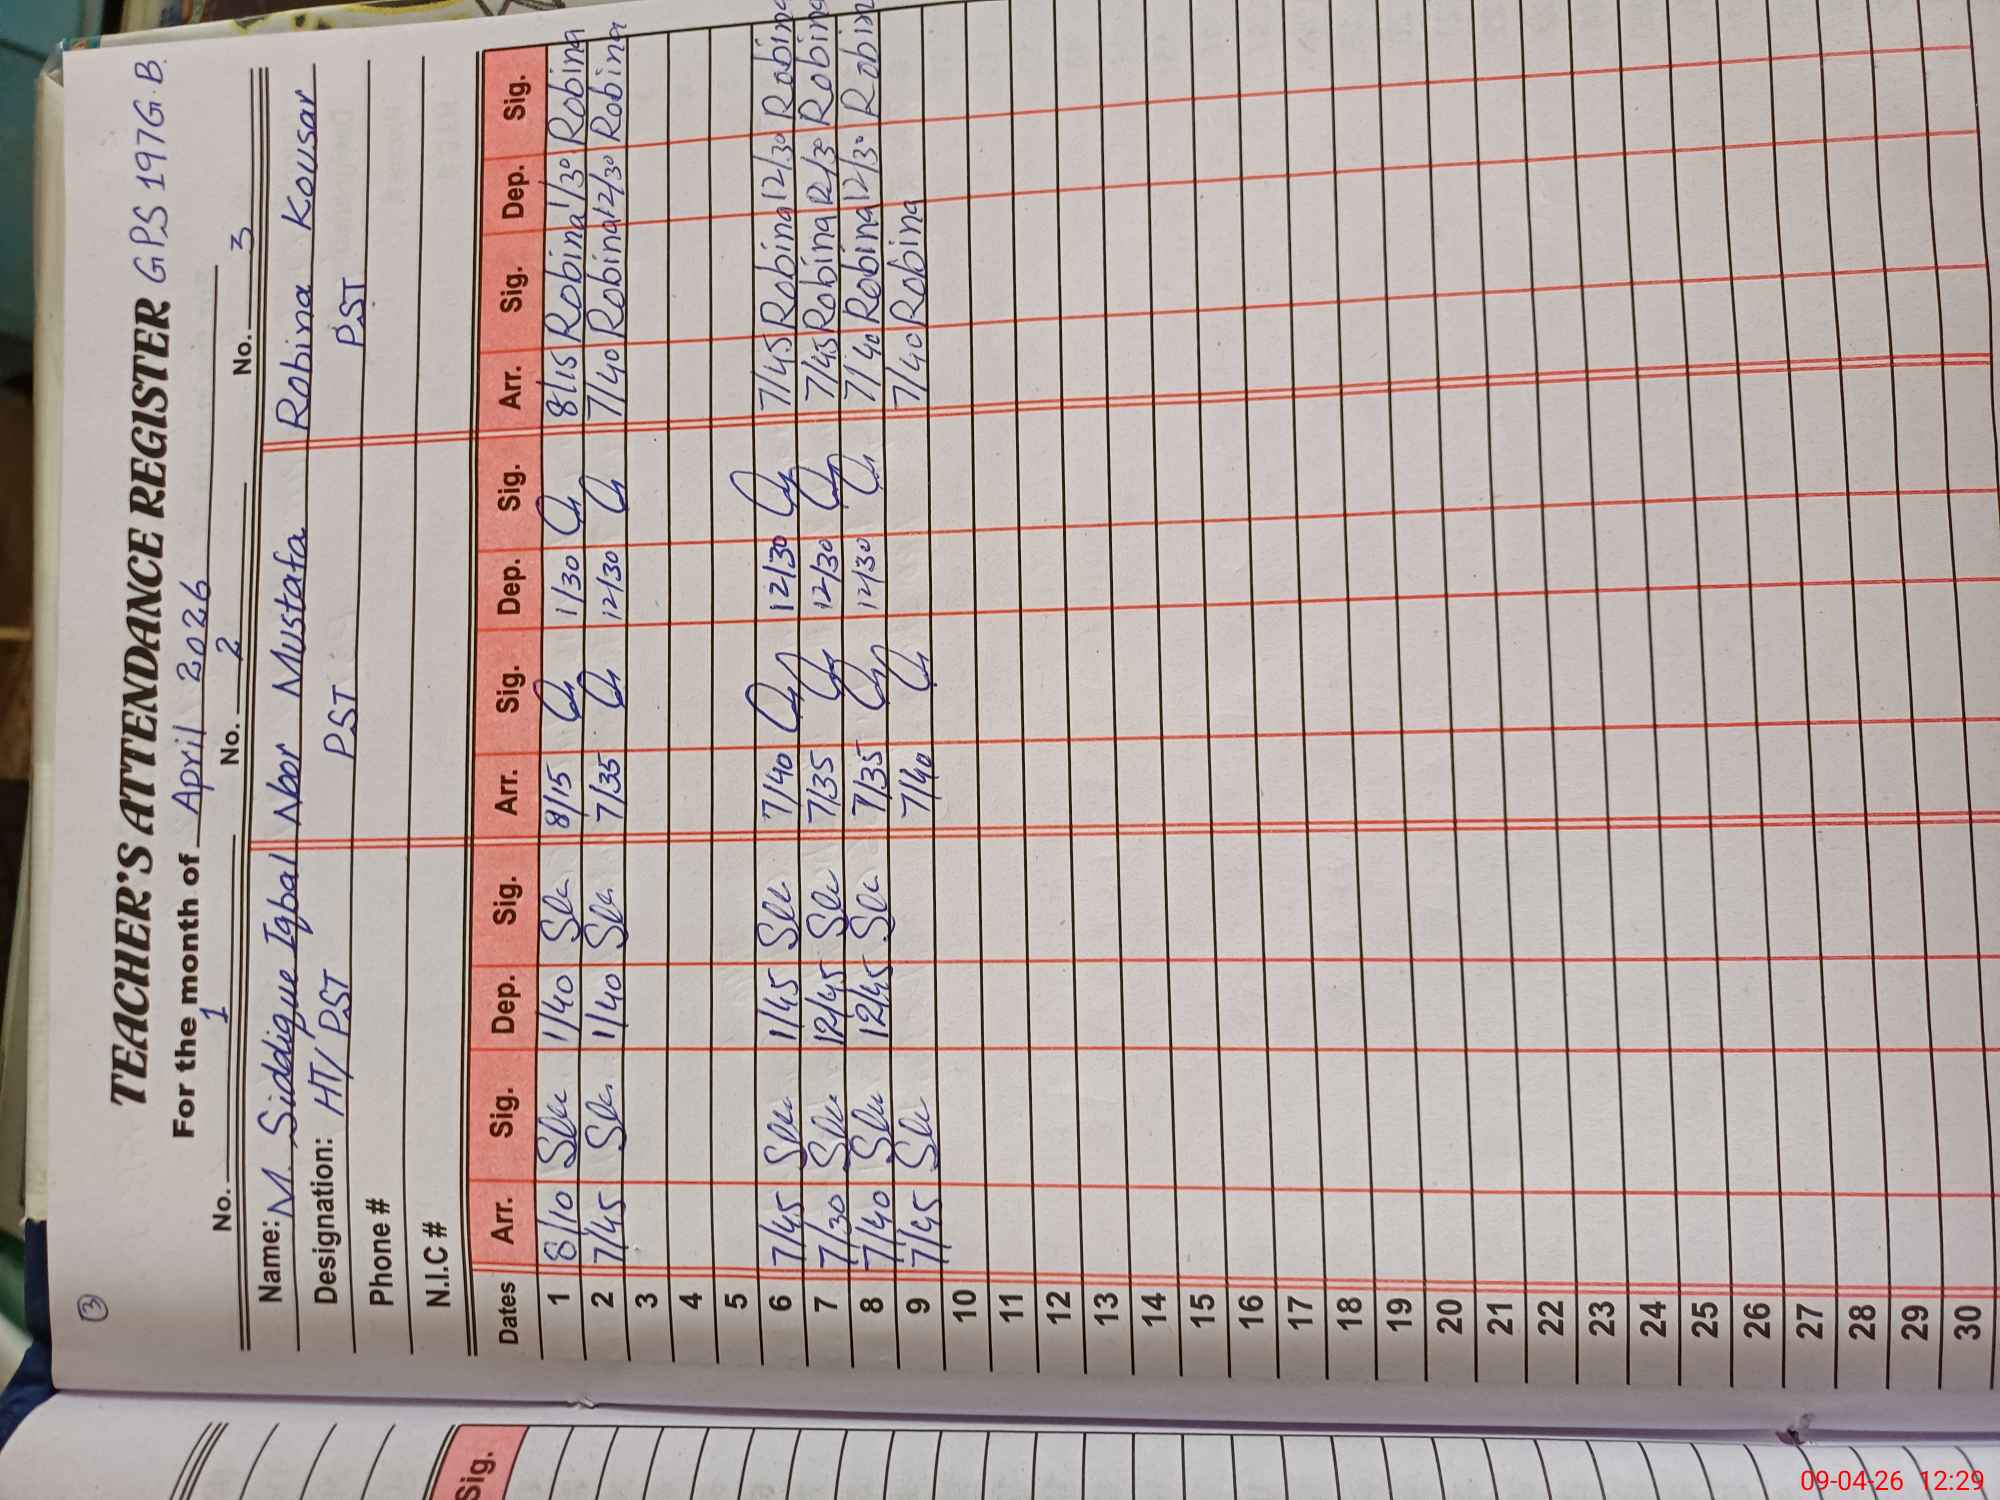 3
TEACHER'S ATTENDANCE REGISTER GPS 197G.B.
For the month of April 2026
No. 1 No. 2 No. 3
Name: M. Siddique Iqbal Noor Mustafa Robina Kousar
Designation: HT/PST PST PST
Phone #
N.I.C #
Dates Arr. Sig. Dep. Sig. Arr. Sig. Dep. Sig. Arr. Sig. Dep. Sig.
1 8/10 1/40 8/15 1/30 8/15 Robina 1/30 Robina
2 7/45 1/40 7/35 12/30 7/40 Robina 12/30 Robina
3
4
5
6 7/45 1/45 7/40 12/30 7/45 Robina 12/30 Robina
7 7/30 12/45 7/35 12/30 7/45 Robina 12/30 Robina
8 7/40 12/45 7/35 12/30 7/40 Robina 12/30 Robin
9 7/45 7/40 7/40 Robina
10
11
12
13
14
15
16
17
18
19
20
21
22
23
24
25
26
27
28
29
30
Sig.
09-04-26 12:29